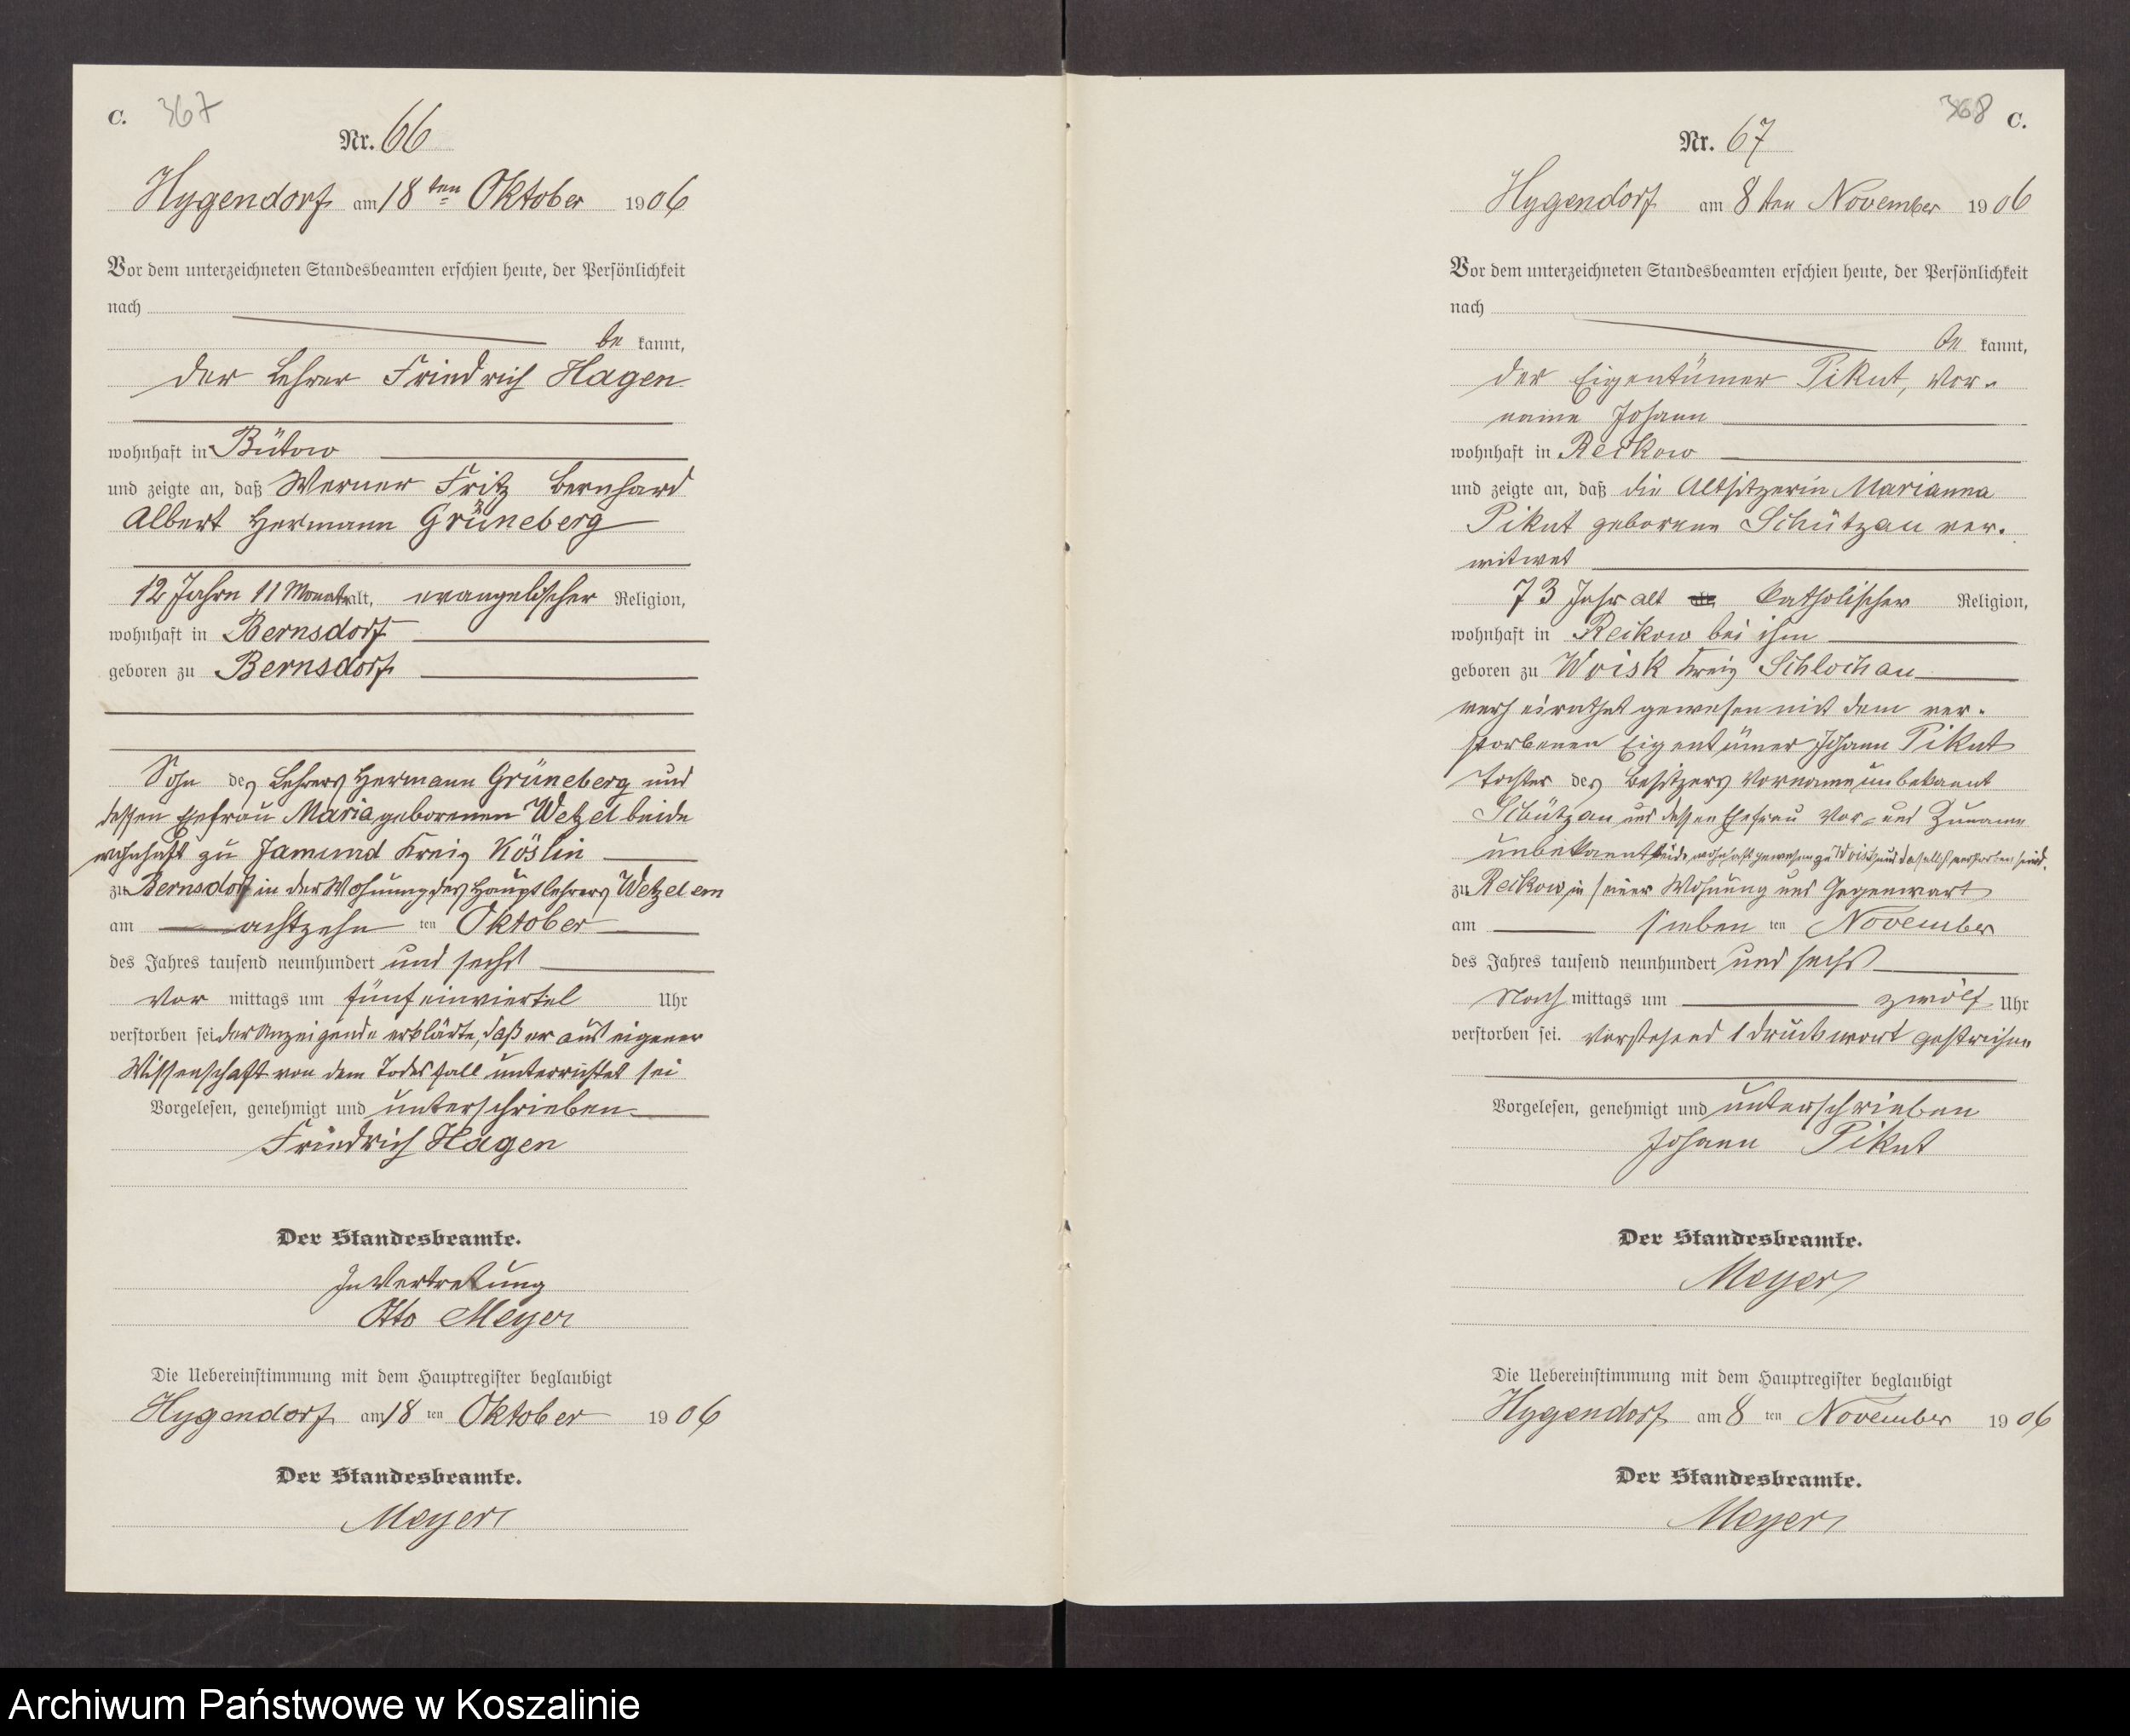 C. 367
Nr. 66
Hygendorf am 18ten Oktober 1906
Vor dem unterzeichneten Standesbeamten erschien heute, der Persönlichkeit
nach
be kannt,
der Lehrer Friedrich Hagen
wohnhaft in Bütow
und zeigte an, daß Werner Fritz Bernhard
Albert Hermann Grüneberg
12 Jahre 11 Monate alt, evangelischer Religion,
wohnhaft in Bernsdorf
geboren zu Bernsdorf
Sohn des Lehrers Hermann Grüneberg und
dessen Ehefrau Maria geborenen Wetzel beide
wohnhaft zu Jamund Kreis Köslin
zu Bernsdorf in der Wohnung des Hauptlehrers Wetzel
am achtzehn ten Oktober
des Jahres tausend neunhundert und sechs
Vor mittags um fünf einviertel Uhr
verstorben sei. der Anzeigende erklärte, daß er aus eigener
Wissenschaft von dem Todesfall unterrichtet sei
Vorgelesen, genehmigt und unterschrieben
Friedrich Hagen
Der Standesbeamte.
In Vertretung
Otto Meyer
Die Uebereinstimmung mit dem Hauptregister beglaubigt
Hygendorf am 18 ten Oktober 1906
Der Standesbeamte.
Meyer
368 C.
Nr. 67
Hygendorf am 8ten November 1906
Vor dem unterzeichneten Standesbeamten erschien heute, der Persönlichkeit
nach
be kannt,
der Eigentümer Pikut, Vor-
name Johann
wohnhaft in Reckow
und zeigte an, daß die Altsitzerin Marianna
Pikut geborene Schützau ver-
witwet
73 Jahr alt katholischer Religion,
wohnhaft in Reckow bei ihm
geboren zu Woisk Kreis Schlochau
verheirathet gewesen mit dem ver-
storbenen Eigentümer Johann Pikut
Tochter des Besitzers Vorname unbekannt
Schützau und dessen Ehefrau Vor- und Zuname
unbekannt beide wohnhaft gewesen zu Woisk und daselbst verstorben sind.
zu Reckow in seiner Wohnung und Gegenwart
am sieben ten November
des Jahres tausend neunhundert und sechs
Nach mittags um zwölf Uhr
verstorben sei. Vorstehend 1 Druckwort gestrichen
Vorgelesen, genehmigt und unterschrieben
Johann Pikut
Der Standesbeamte.
Meyer
Die Uebereinstimmung mit dem Hauptregister beglaubigt
Hygendorf am 8 ten November 1906
Der Standesbeamte.
Meyer
Archiwum Państwowe w Koszalinie